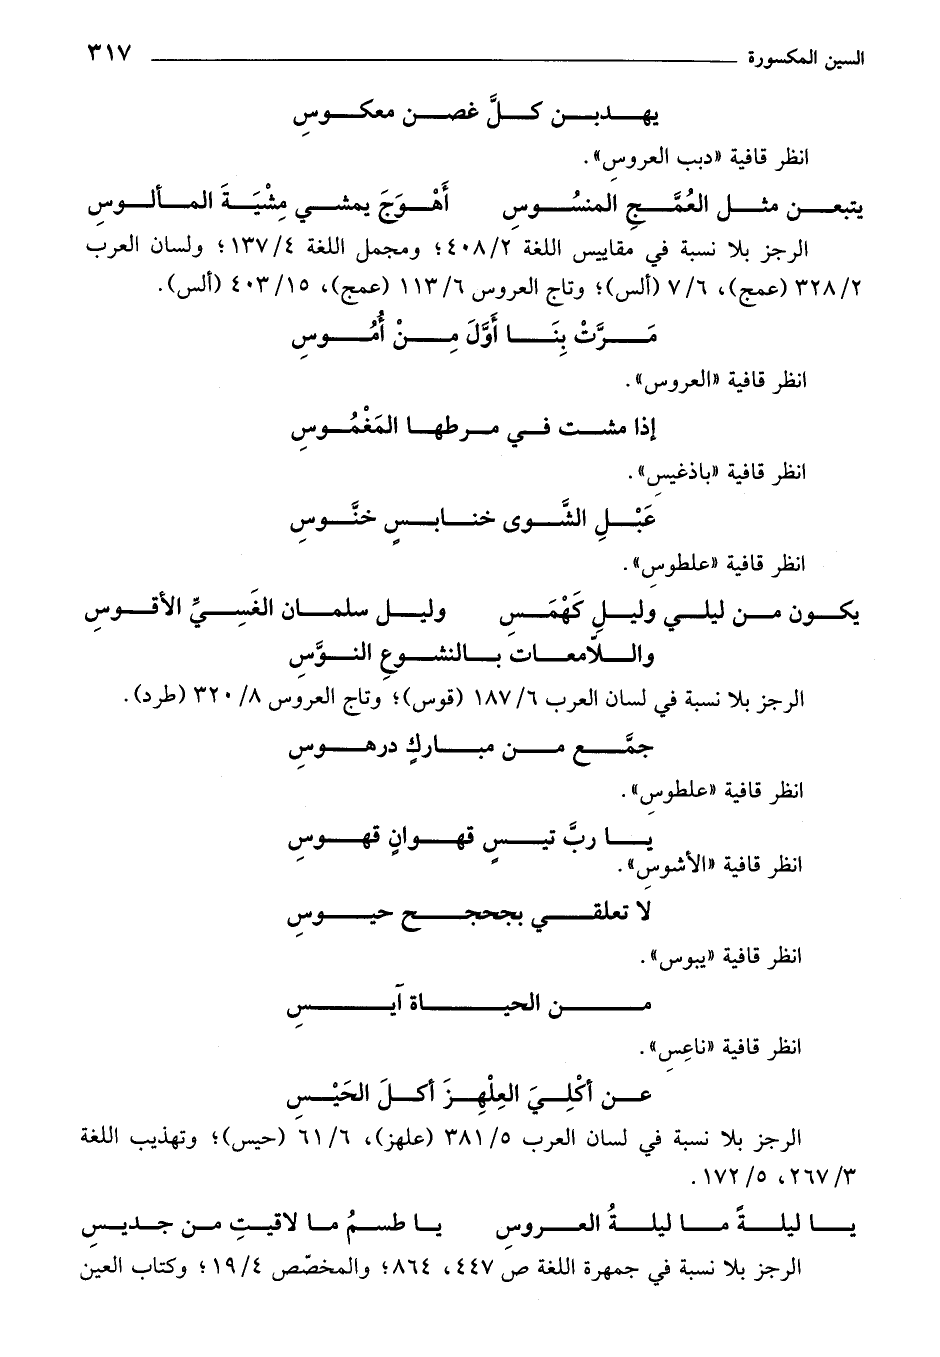 السين المكسورة ٣١٧
يهدبن كلَّ غصن معكوسِ
انظر قافية «دبب العروسِ».
يتبعن مثل العُمَّجِ المنسُوسِ أَهْوَجَ يمشي مِشْيَةَ المألوسِ
الرجز بلا نسبة في مقاييس اللغة ٤٠٨/٢؛ ومجمل اللغة ١٣٧/٤؛ ولسان العرب
٣٢٨/٢ (عمج)، ٧/٦ (ألس)؛ وتاج العروس ١١٣/٦ (عمج)، ٤٠٣/١٥ (ألس).
مَرَّتْ بِنَا أَوَّلَ مِنْ أُمُوسِ
انظر قافية «العروسِ».
إذا مشت في مرطها المَغْمُوسِ
انظر قافية «باذغيسِ».
عَبْلِ الشَّوى خنابسٍ خنَّوسِ
انظر قافية «علطوسِ».
يكون من ليلي وليلِ كَهْمَسِ وليل سلمان الغَسِيِّ الأقوسِ
واللّامعات بالنشوعِ النوَّسِ
الرجز بلا نسبة في لسان العرب ١٨٧/٦ (قوس)؛ وتاج العروس ٣٢٠/٨ (طرد).
جمَّع من مباركٍ درهوسِ
انظر قافية «علطوسِ».
يا ربَّ تيسٍ قهوانٍ قهوسِ
انظر قافية «الأشوسِ».
لا تعلقي بجحجح حيوسِ
انظر قافية «يبوس».
من الحياة آيسِ
انظر قافية «ناعِسِ».
عن أكْلِيَ العِلْهِزَ أكلَ الحَيْسِ
الرجز بلا نسبة في لسان العرب ٣٨١/٥ (علهز)، ٦١/٦ (حيس)؛ وتهذيب اللغة
٢٦٧/٣، ١٧٢/٥.
يا ليلةً ما ليلةُ العروسِ يا طسمُ ما لاقيتِ من جديسِ
الرجز بلا نسبة في جمهرة اللغة ص ٤٤٧، ٨٦٤؛ والمخصّص ١٩/٤؛ وكتاب العين